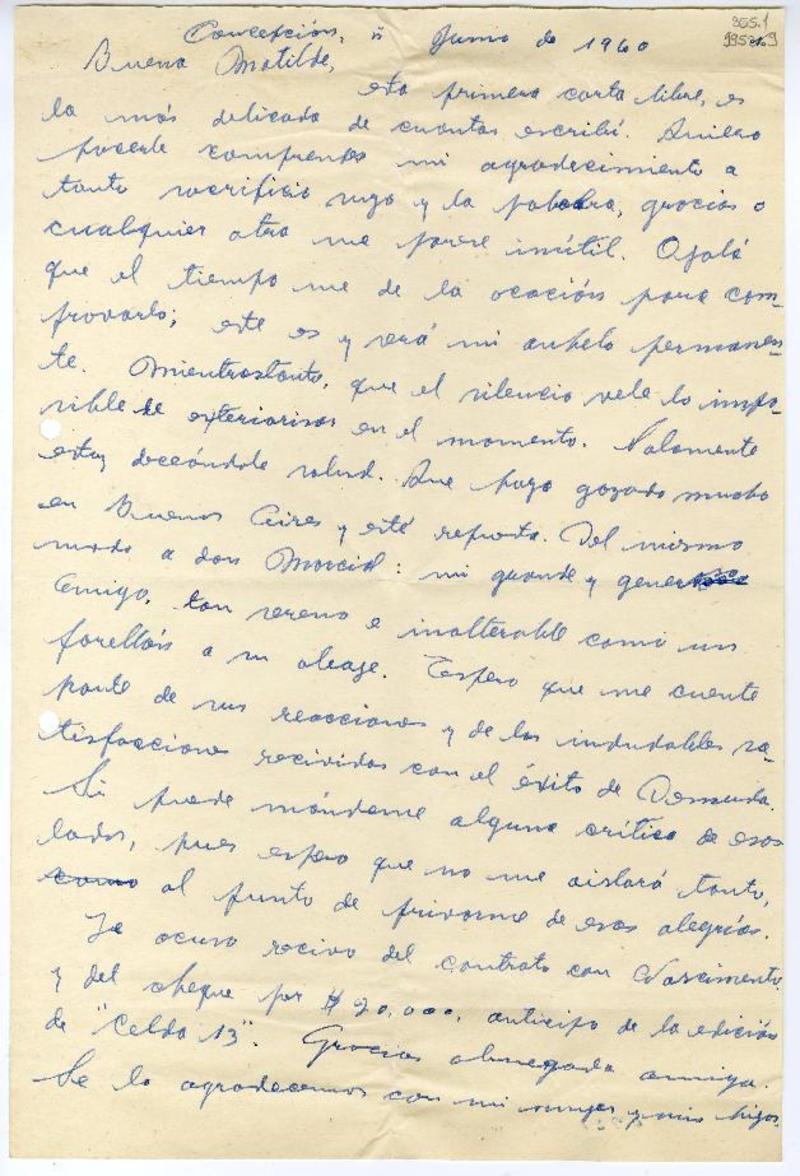 355.1
Concepción, Junio de 1960
Buena Matilde,
esta primera carta libre, es
la más delicada de cuantas escribí. Quiero
hacerle comprender mi agradecimiento a
tanto sacrificio suyo y la palabra, gracias o
cualquier otra me parece inútil. Ojalá
que el tiempo me de la ocación para com-
provarlo; este es y será mi anhelo permanen-
te. Mientrastanto, que el silencio vele lo impo-
sible de exteriorisar en el momento. Solamente
estoy deceándole salud. Que haya gozado mucho
en Buenos Aires y esté repuesta. Del mismo
modo a don Marcial: mi grande y generoso
Amigo, tan sereno e inalterable como un
farellón a su oleaje. Espero que me cuente
parte de sus reacciones y de las indudables sa-
tisfacciones recividas con el éxito de Desnuda.
Si puede mándeme alguna crítica de esos
lados, pues espero que no me aislará tanto,
como al punto de privarme de esas alegrías.
Le acuso recivo del contrato con Nascimento
y del cheque por $ 20.000, anticipo de la edición
de "Celda 13". Gracias abnegada amiga.
Se lo agradecemos con mi mujer y mis hijos.